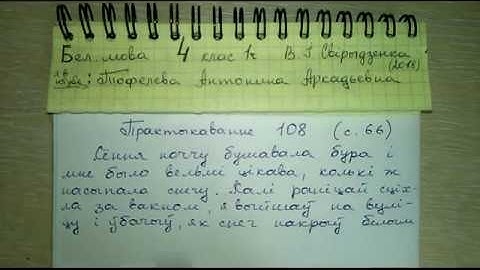 Бел. мова 4 клас 1ч В. І. Свірыдзенка
(2018)
: Тофелева Антонина Аркадьевна
Практыкаванне 108 (с. 66)
Сёння ноччу бушавала бура і
мне было вельмі цікава, колькі ж
насыпала снегу. Калі раніцай сціх-
ла за вакном, я выйшаў на вулі-
цу і ўбачыў, як снег накрыў белым